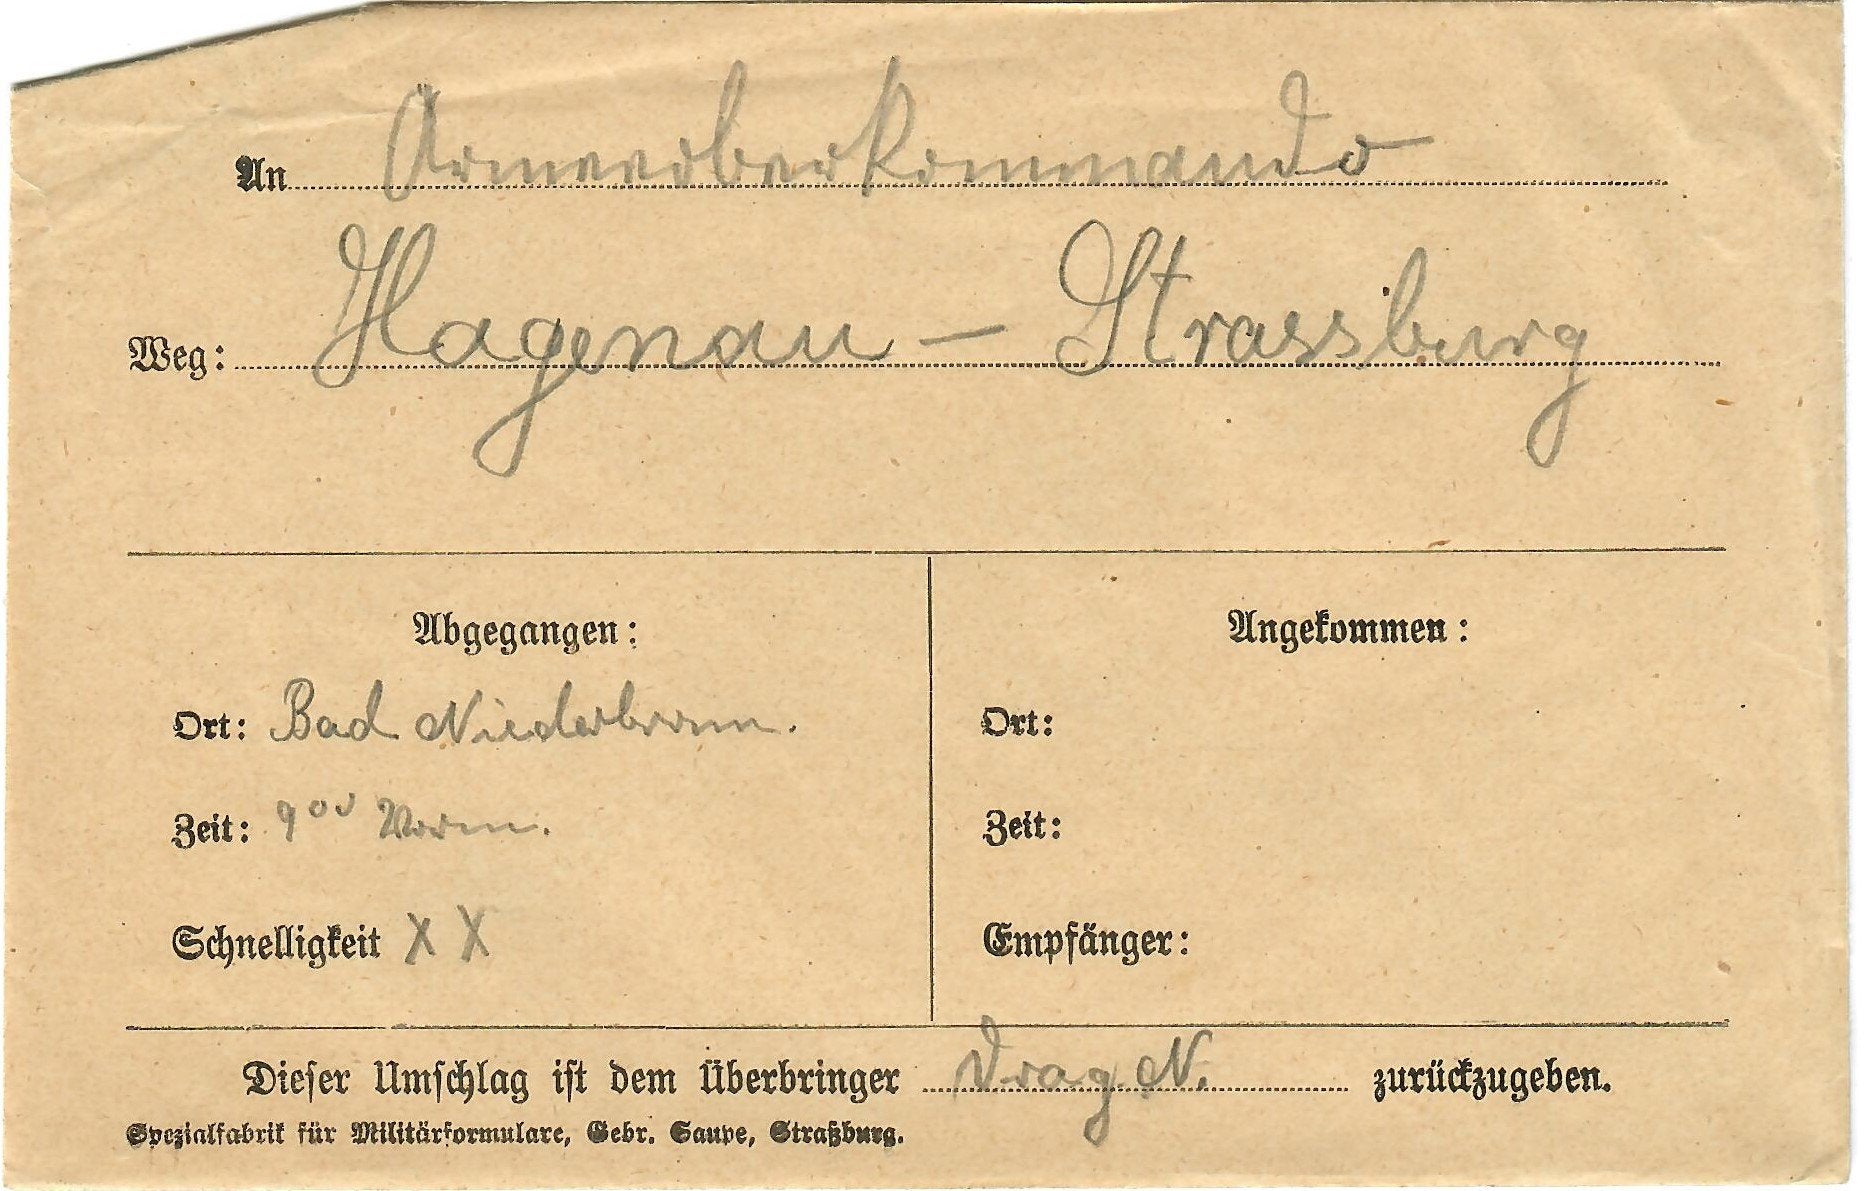 An Armeeoberkommando
Weg: Hagenau – Strassburg
Abgegangen:
Ort: Bad Niederbronn.
Zeit: 9⁰⁰ Vorm.
Schnelligkeit X X
Angekommen:
Ort:
Zeit:
Empfänger:
Dieser Umschlag ist dem Überbringer Drag. N. zurückzugeben.
Spezialfabrik für Militärformulare, Gebr. Saupe, Straßburg.